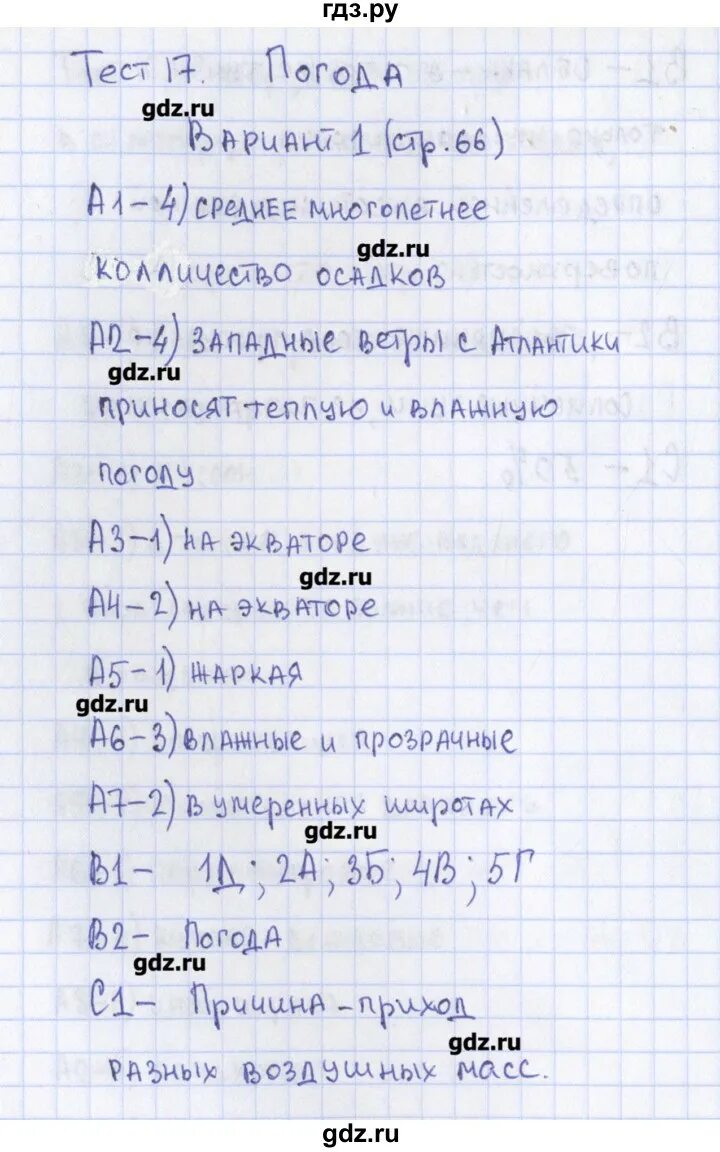 гдз.ру
Тест 17. Погода
gdz.ru
Вариант 1 (стр. 66)
А1 – 4) среднее многолетнее
gdz.ru
колличество осадков
А2 – 4) западные ветры с Атлантики
gdz.ru
приносят теплую и влажную
погоду
А3 – 1) на экваторе
gdz.ru
А4 – 2) на экваторе
А5 – 1) жаркая
gdz.ru
А6 – 3) влажные и прозрачные
А7 – 2) в умеренных широтах
gdz.ru
В1 – 1Д; 2А; 3Б; 4В; 5Г
В2 – Погода
gdz.ru
С1 – Причина – приход
gdz.ru
разных воздушных масс.
gdz.ru